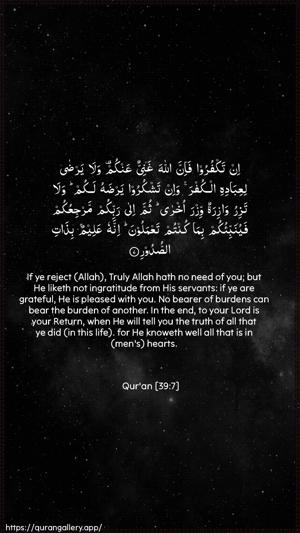 اِنۡ تَكۡفُرُوۡا فَاِنَّ اللّٰهَ غَنِىٌّ عَنۡكُمۡ وَلَا يَرۡضٰى
لِعِبَادِهِ الۡـكُفۡرَ ۚ وَاِنۡ تَشۡكُرُوۡا يَرۡضَهُ لَـكُمۡ ؕ وَلَا
تَزِرُ وَازِرَةٌ وِّزۡرَ اُخۡرٰى ؕ ثُمَّ اِلٰى رَبِّكُمۡ مَّرۡجِعُكُمۡ
فَيُنَبِّئُكُمۡ بِمَا كُنۡتُمۡ تَعۡمَلُوۡنَ ؕ اِنَّهٗ عَلِيۡمٌۢ بِذَاتِ
الصُّدُوۡرِ
If ye reject (Allah), Truly Allah hath no need of you; but
He liketh not ingratitude from His servants: if ye are
grateful, He is pleased with you. No bearer of burdens can
bear the burden of another. In the end, to your Lord is
your Return, when He will tell you the truth of all that
ye did (in this life). for He knoweth well all that is in
(men's) hearts.
Qur'an [39:7]
https://qurangallery.app/